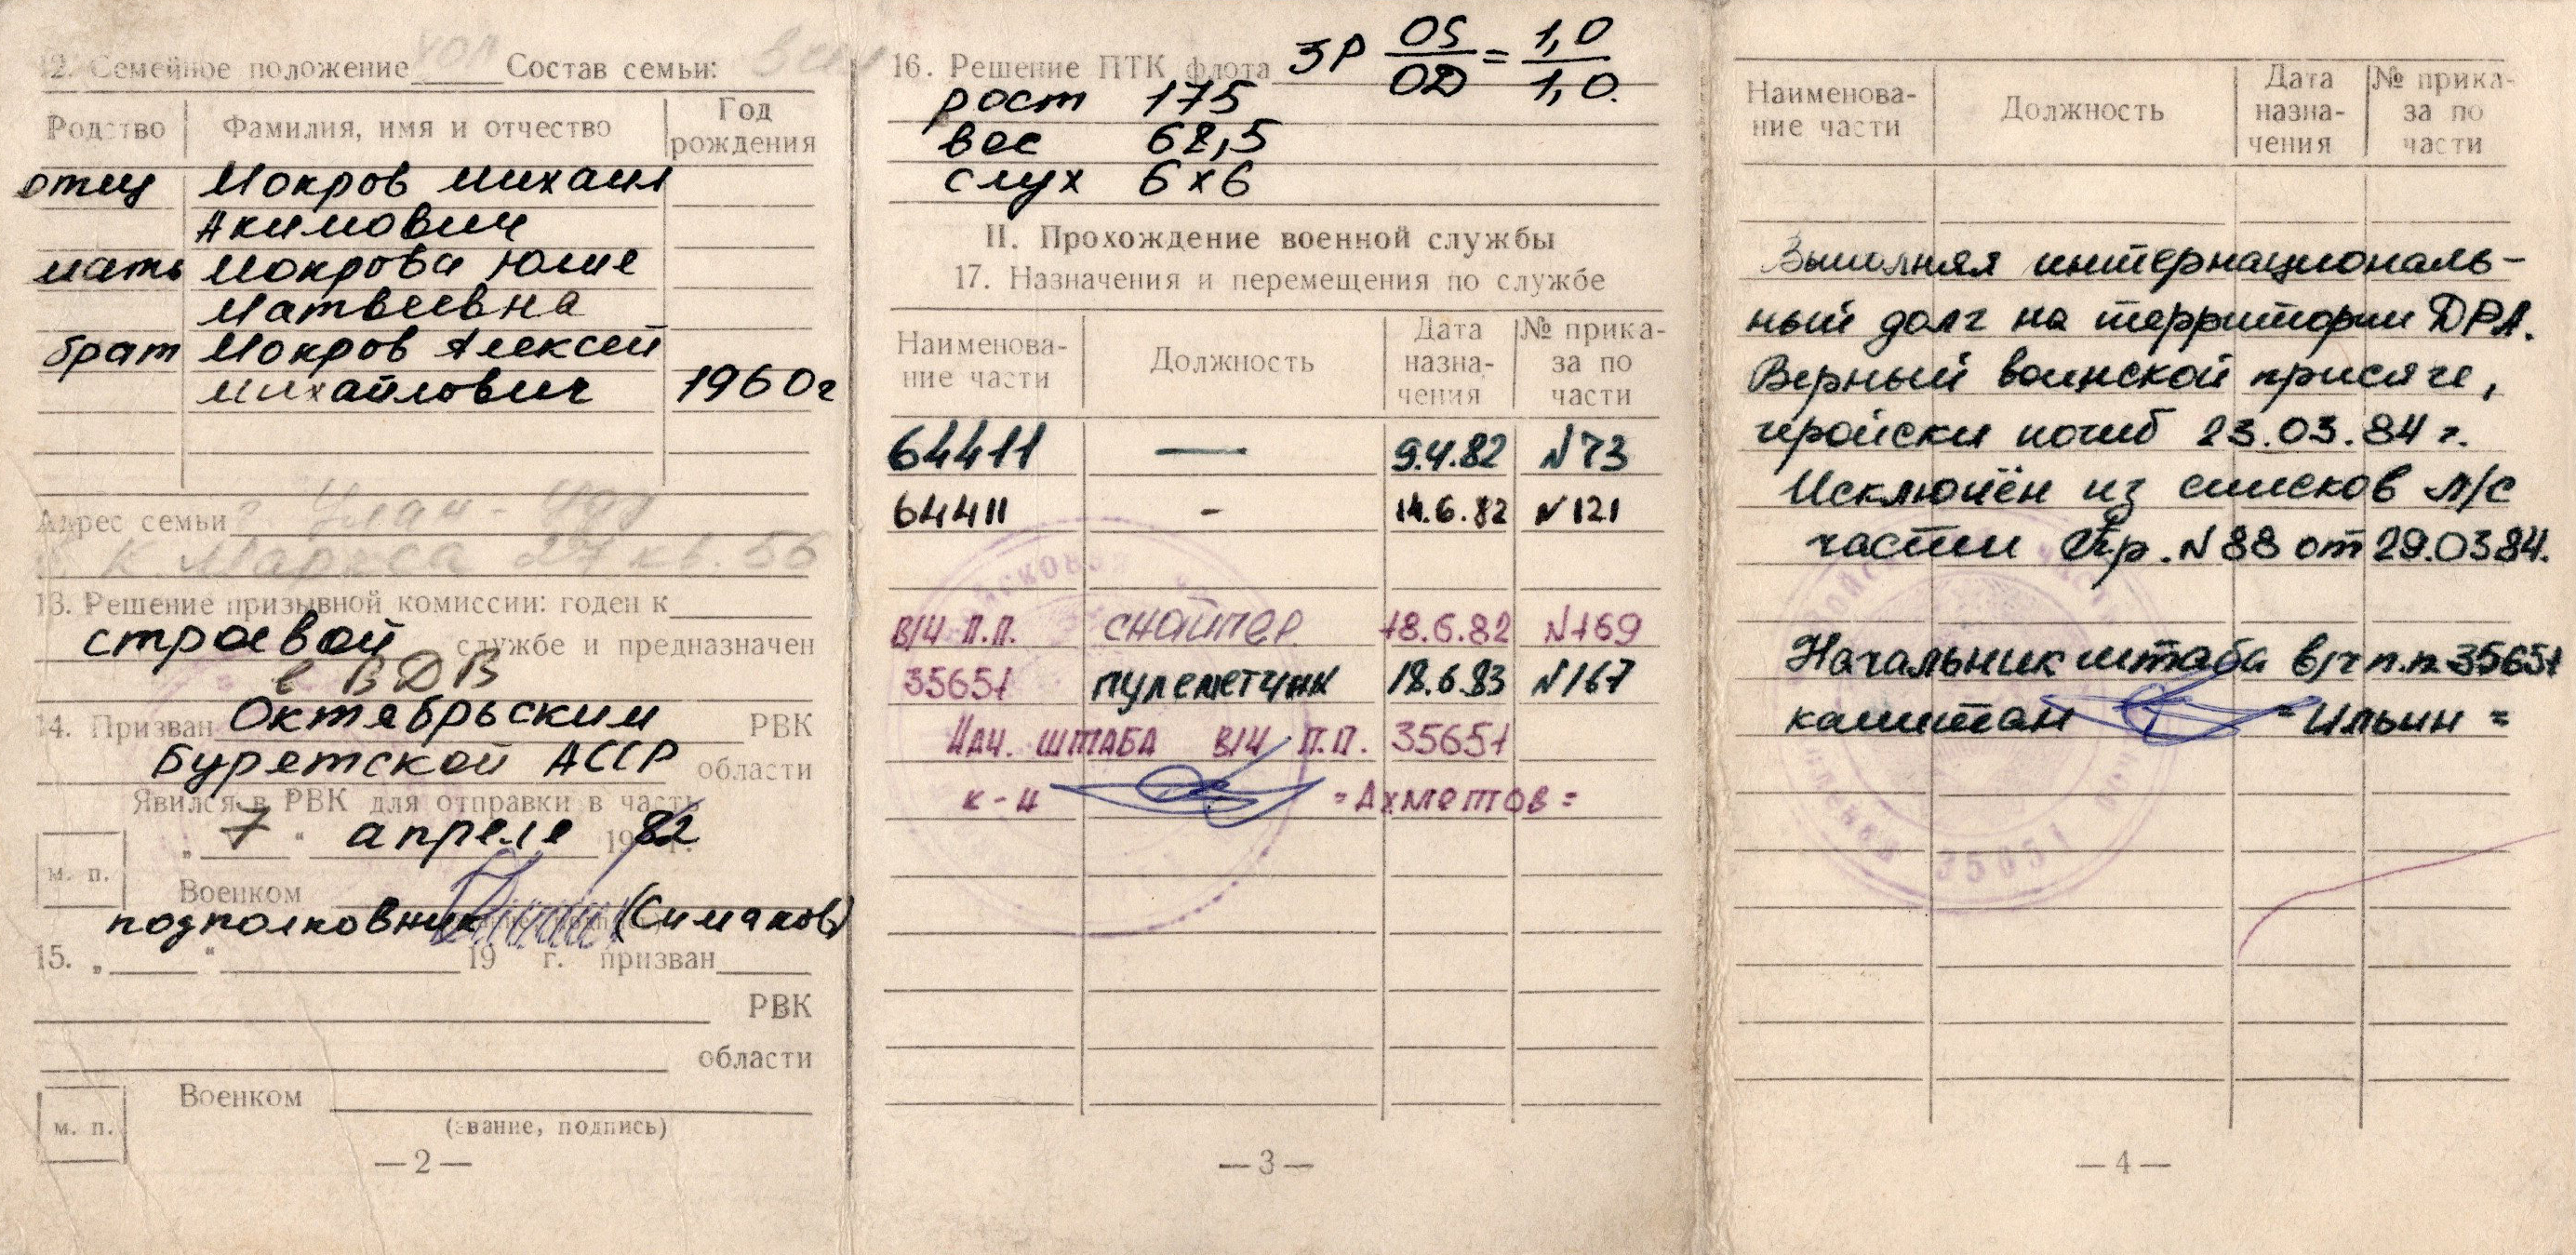 12. Семейное положение хол Состав семьи:
Родство Фамилия, имя и отчество Год рождения
отец Мокров Михаил
Акимович
мать Мокрова Юлие
Матвеевна
брат Мокров Алексей
Михайлович 1960г
Адрес семьи г Улан-Удэ
К Маркса 27 кв. 56
13. Решение призывной комиссии: годен к
строевой службе и предназначен
в ВДВ
14. Призван Октябрьским РВК
Буретской АССР области
Явился в РВК для отправки в часть
„ 7 “ апреле 1982 г.
м. п.
Военком
подполковник (Симаков)
15. „ “ 19 г. призван
РВК
области
Военком
м. п. (звание, подпись)
—2—
16. Решение ПТК флота ЗР OS/OD = 1,0/1,0.
рост 175
вес 68,5
слух 6х6
II. Прохождение военной службы
17. Назначения и перемещения по службе
Наименова- Должность Дата № прика-
ние части назна- за по
чения части
64411 — 9.4.82 N73
64411 - 14.6.82 N121
В/Ч П.П. СНАЙПЕР 18.6.82 N169
35651 ПУЛЕМЕТЧИК 18.6.83 N167
НАЧ. ШТАБА В/Ч П.П. 35651
к-н =Ахметов=
—3—
Наименова- Должность Дата № прика-
ние части назна- за по
чения части
Выполняя интернациональ-
ный долг на территории ДРА.
Верный воинской присяге,
геройски погиб 23.03.84 г.
Исключён из списков л/с
части Пр. N88 от 29.03 84.
Начальник штаба в/ч п.п.35651
капитан =Ильин=
35651
—4—